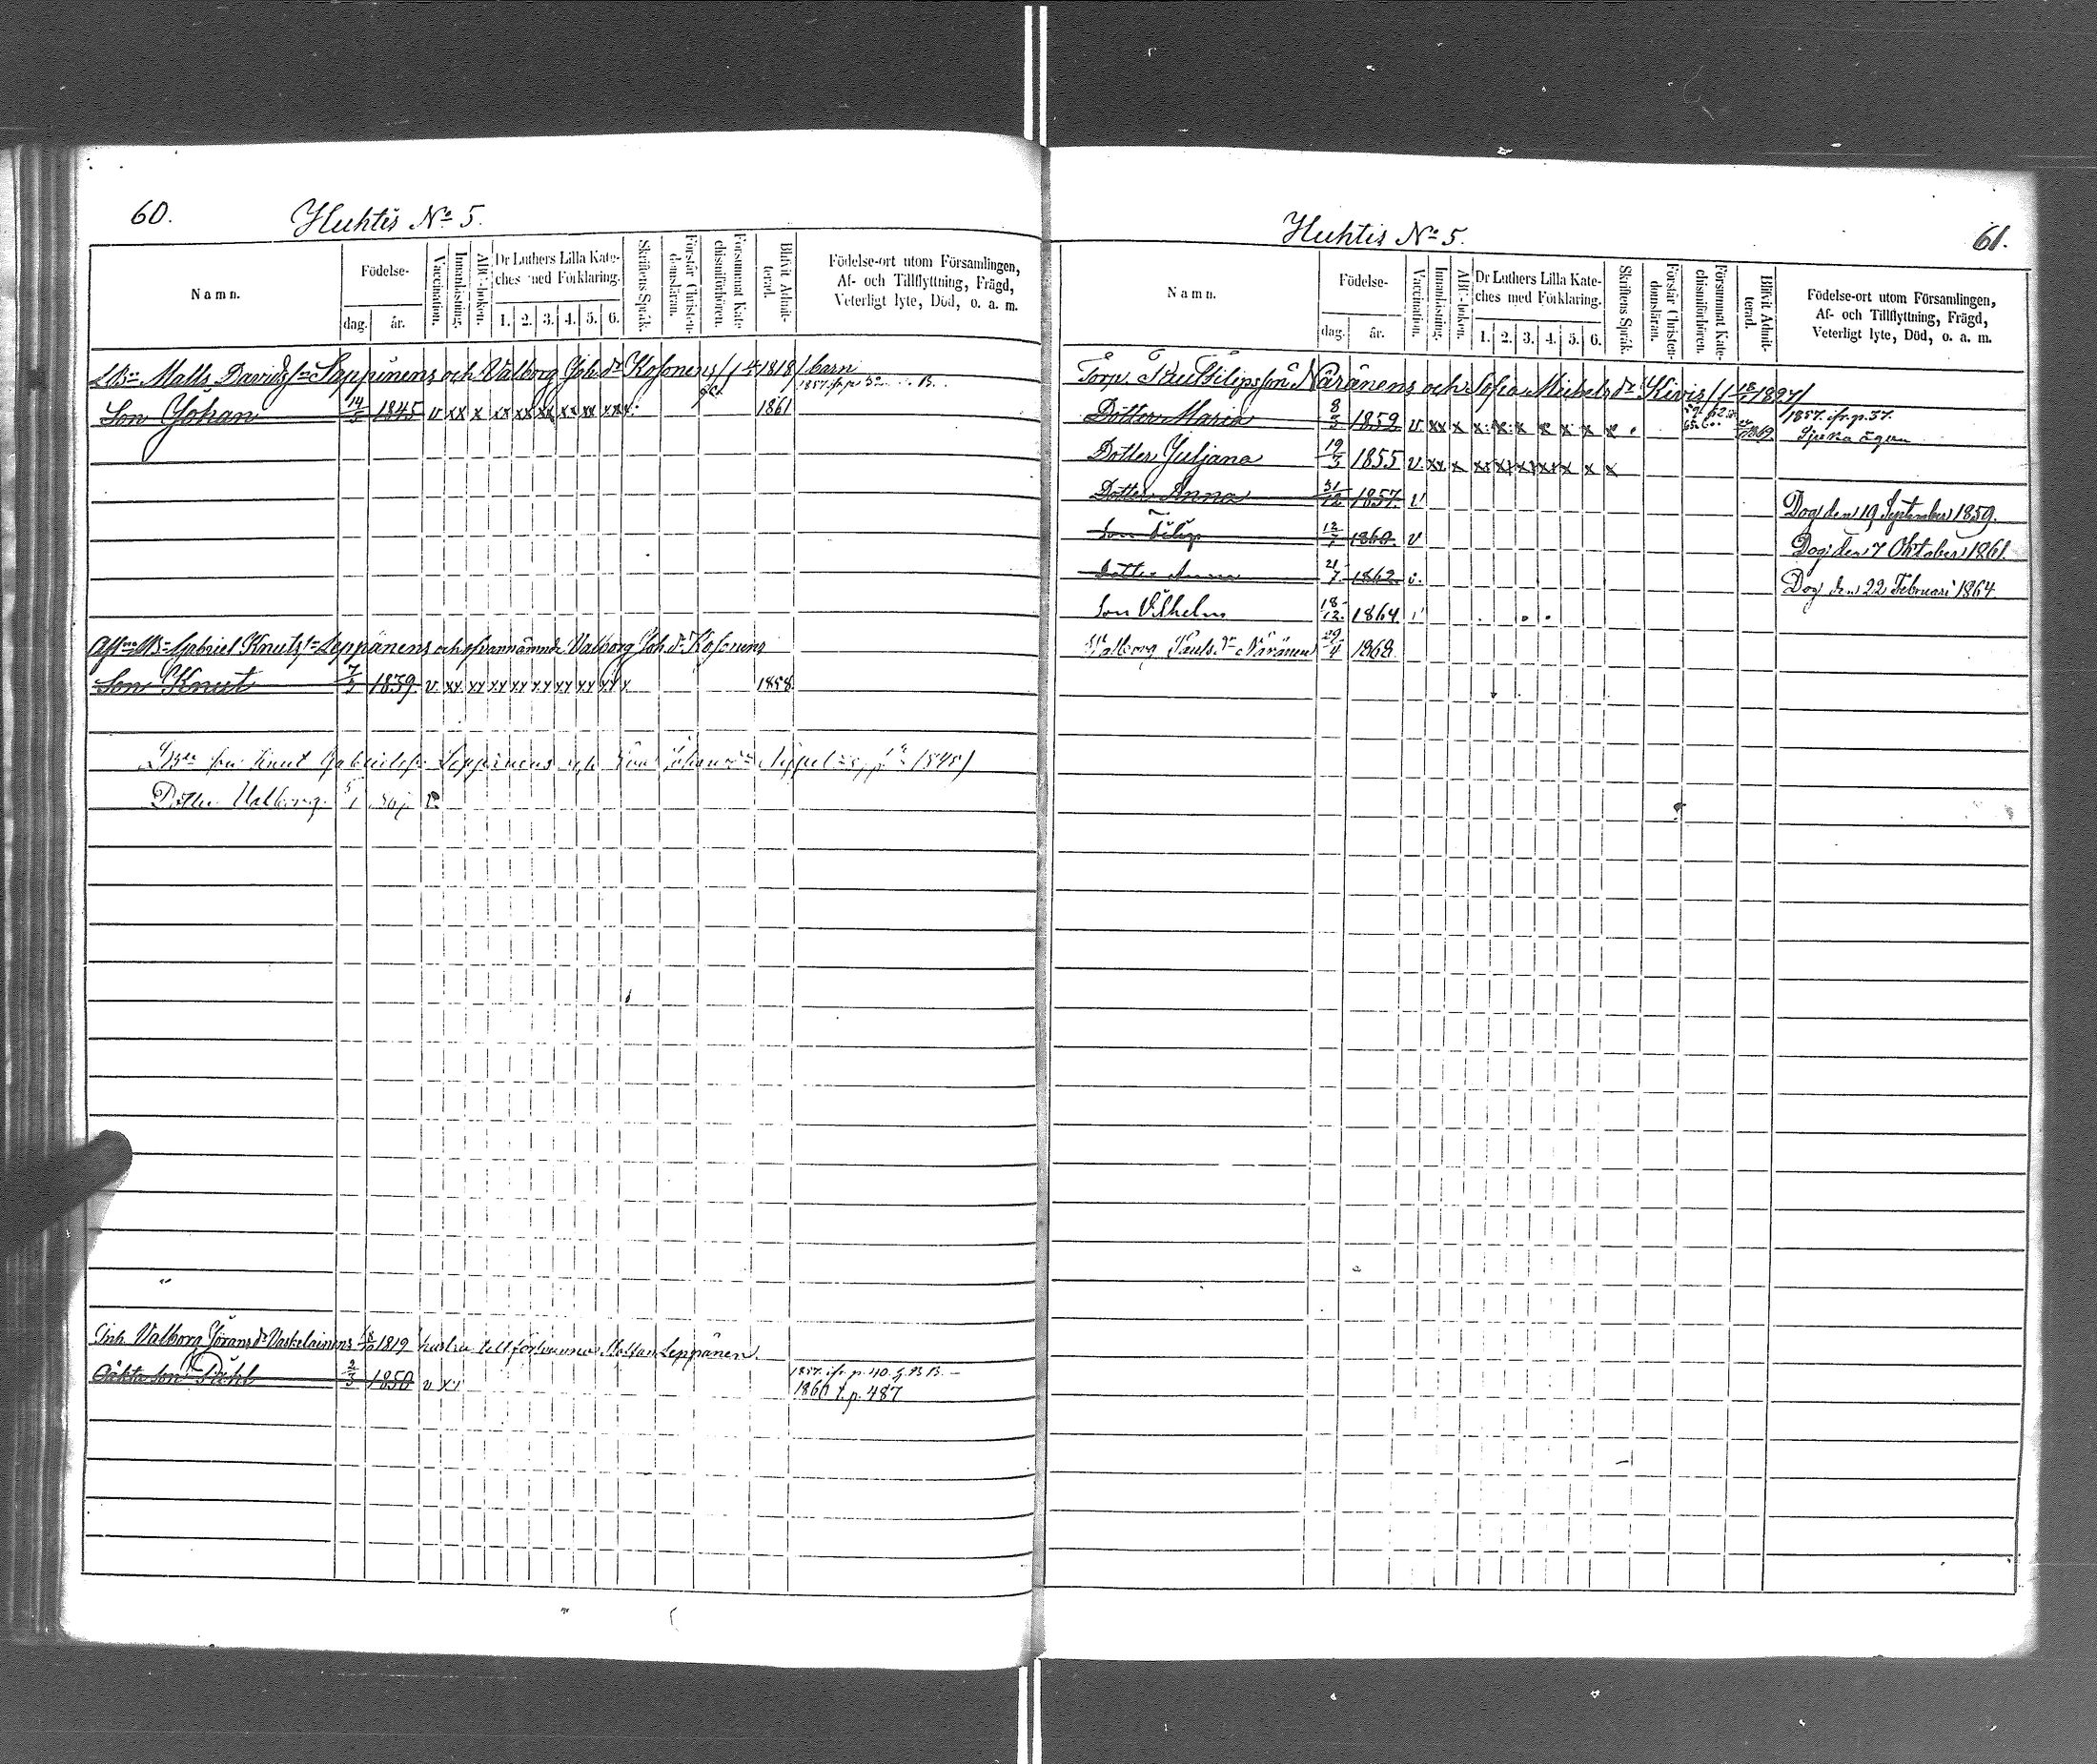 60.
Huhtis No 5.
Namn.
Födelse-
dag.
år.
Vaccination.
Innanläsning.
ABC-boken.
Dr Luthers Lilla Kate-
ches med Förklaring.
1. 2. 3. 4. 5. 6.
Skriftens Språk.
Förstår Christen-
domsläran.
Försummat Kate-
chismiförhören.
Blifvit Admit-
terad.
Födelse-ort utom Församlingen,
Af- och Tillflyttning, Frägd,
Veterligt lyte, Död, o. a. m.
Matts Davidss:n Läppinens och Valborg Joh. dr Kosonens 1818 / barn
Son Johan 14/5 1845 v xx x xx xx xx xx xx xx 1861
Gabriel Knutss:n Leppänens och ofvannämnde Valborg Joh. dr Kosonens
Son Knut 7/3 1839. v xx xx xx xx xx xx xx xx x 1858
Knut Gabrielss. Leppinens
Dotter Valborg.
Inh. Valborg Görans dr Vaskelainens 1819 hustru till försvunne Staffan Leppänen.
Oäkta son Påhl 2/3 1850 v 1857. ifr. p. 40. g. B B.
1860 t. p. 487
Huhtis No 5.
61.
Namn.
Födelse-
dag.
år.
Vaccination.
Innanläsning.
ABC-boken.
Dr Luthers Lilla Kate-
ches med Förklaring.
1. 2. 3. 4. 5. 6.
Skriftens Språk.
Förstår Christen-
domsläran.
Försummat Kate-
chismiförhören.
Blifvit Admit-
terad.
Födelse-ort utom Församlingen,
Af- och Tillflyttning, Frägd,
Veterligt lyte, Död, o. a. m.
Torp. Filipsson Näränens och Sofia Michels dr Kivis 1827/
Dotter Maria 8/3 1852 v. xx x x. x. x x x x x 1857. ifr. p. 37.
Sjuka ögon
Dotter Juljana 19/3 1855 v. xx x xx xx xx xx x x x
Dotter Anna 31/12 1857. v Dog den 19 September 1859.
Son Filip 12/7 1860. v Dog den 7 Oktober 1861.
Dotter Anna 21/7 1862 v. Dog den 22 Februari 1864
Son Vilhelm 18/12. 1864
Valborg Pauls dr Näränen 29/4 1868